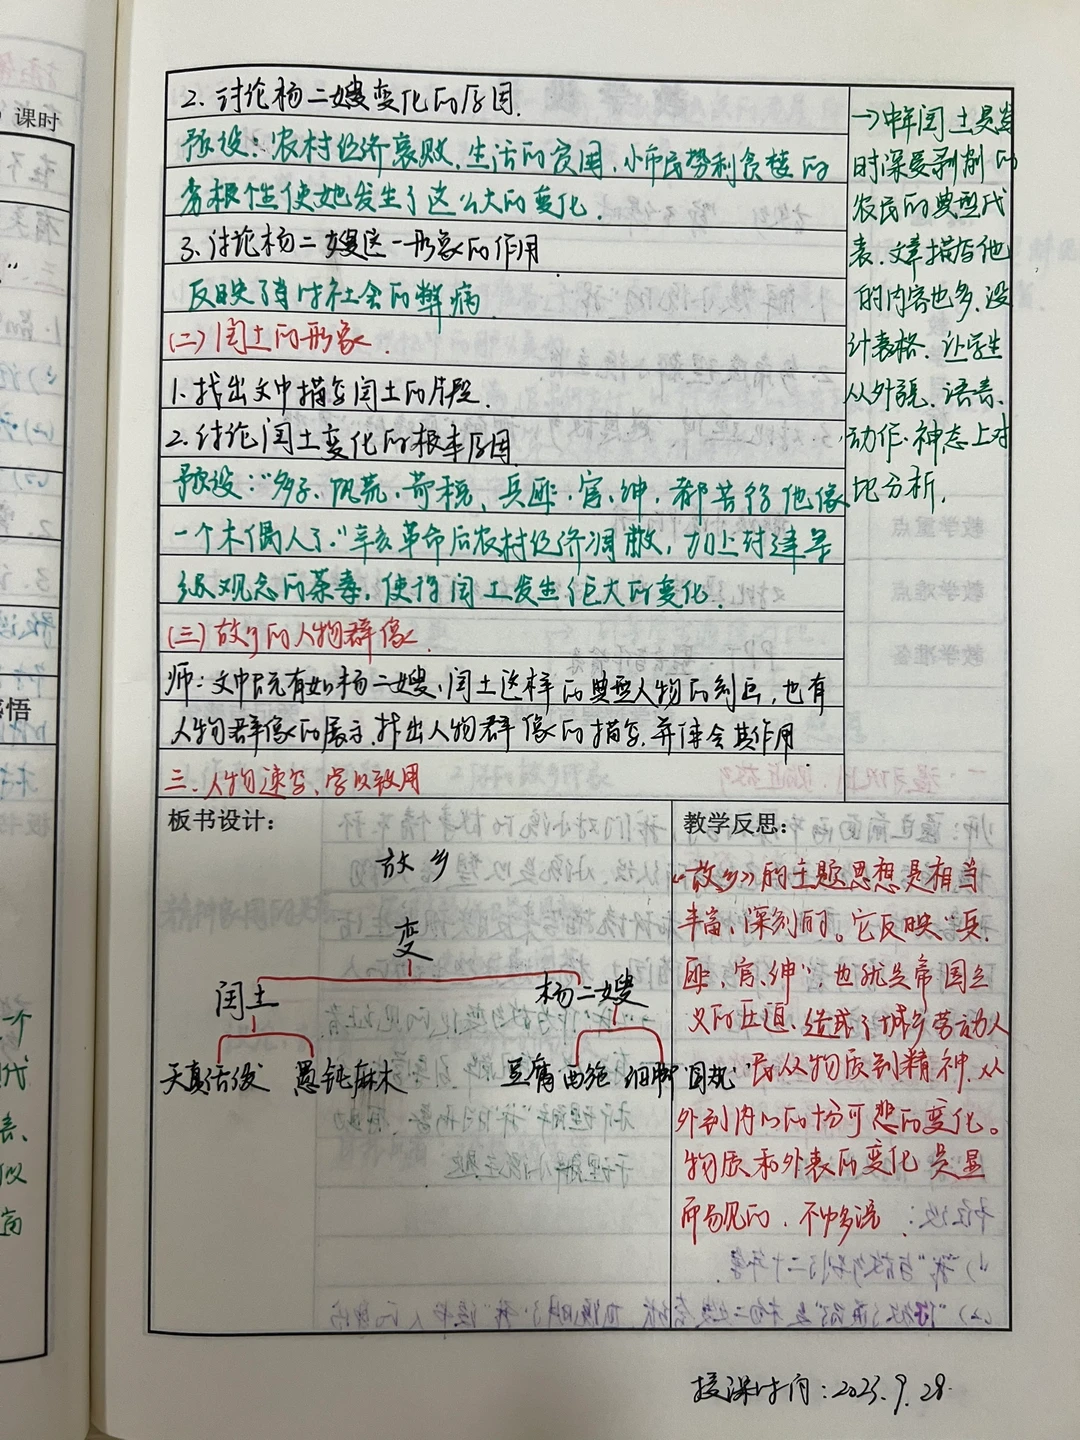 课时
悟
2. 讨论杨二嫂变化的原因
预设：农村经济衰败、生活的贫困、小市民势利贪婪的
劣根性使她发生了这么大的变化.
3. 讨论杨二嫂这一形象的作用
反映了当时社会的弊病
(二) 闰土的形象.
1. 找出文中描写闰土的片段.
2. 讨论闰土变化的根本原因
预设：“多子、饥荒、苛税、兵、匪、官、绅，都苦得他像
一个木偶人了.”辛亥革命后农村经济凋敝，加上封建等
级观念的荼毒，使得闰土发生巨大的变化.
(三) 故乡的人物群像.
师：文中既有如杨二嫂、闰土这样的典型人物的刻画，也有
人物群像的展示.找出人物群像的描写，并体会其作用
三. 人物速写、学以致用
→中年闰土是当
时深受剥削的
农民的典型代
表.文章描写他
的内容也多.设
计表格.让学生
从外貌、语言、
动作、神态上对
比分析.
板书设计：
故乡
变
闰土 杨二嫂
天真活泼 愚钝麻木 豆腐西施 细脚圆规
教学反思：
《故乡》的主题思想是相当
丰富、深刻的。它反映“兵、
匪、官、绅”，也就是帝国主
义的压迫、造成了城乡劳动人
民从物质到精神.从
外到内的十分可悲的变化。
物质和外表的变化是显
而易见的，不必多说.
授课时间：2023.9.28.